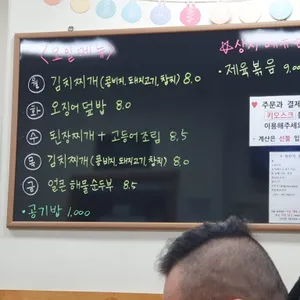 <요일메뉴>
월 김치찌개 (콩비지, 돼지고기, 참치) 8.0
화 오징어덮밥 8.0
수 된장찌개 + 고등어조림 8.5
목 김치찌개 (콩비지, 돼지고기, 참치) 8.0
금 얼큰해물순두부 8.5
• 공기밥 1,000
• 제육볶음 9.00
♥ 주문과 결제
키오스크
이용해주세요
- 계산은 선불